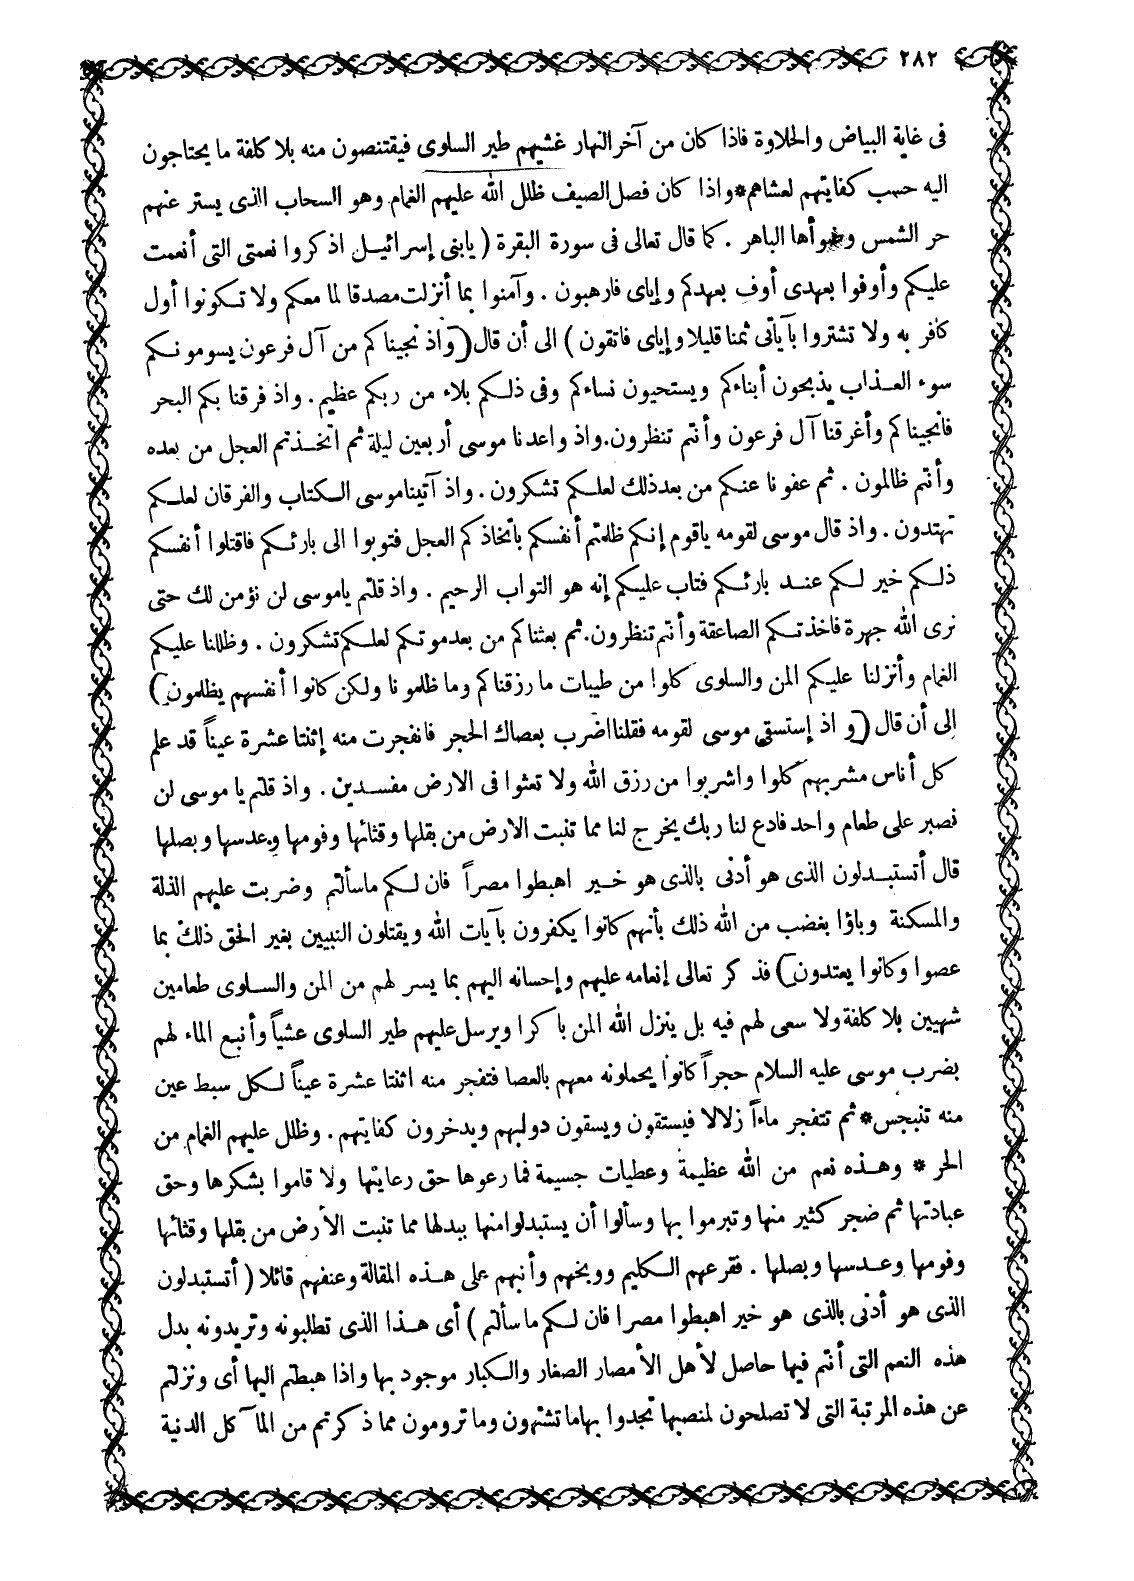 ٢٨٢
فى غاية البياض والحلاوة فاذا كان من آخر النهار غشيهم طير السلوى فيقتنصون منه بلا كلفة ما يحتاجون
اليه حسب كفايتهم لعشاهم*واذا كان فصل الصيف ظلل الله عليهم الغمام وهو السحاب الذى يستر عنهم
حر الشمس وضوأها الباهر . كما قال تعالى فى سورة البقرة ( يابنى إسرائيل اذكروا نعمتى التى أنعمت
عليكم وأوفوا بعهدى أوف بعهدكم وإياى فارهبون . وآمنوا بما أنزلت مصدقا لما معكم ولا تكونوا أول
كافر به ولا تشتروا بآياتى ثمنا قليلا وإياى فاتقون ) الى أن قال ( واذ نجيناكم من آل فرعون يسومونكم
سوء العذاب يذبحون أبناءكم ويستحيون نساءكم وفى ذلكم بلاء من ربكم عظيم . واذ فرقنا بكم البحر
فانجيناكم وأغرقنا آل فرعون وأنتم تنظرون.واذ واعدنا موسى أربعين ليلة ثم اتخذتم العجل من بعده
وأنتم ظالمون . ثم عفونا عنكم من بعد ذلك لعلكم تشكرون . واذ آتينا موسى الكتاب والفرقان لعلكم
تهتدون . واذ قال موسى لقومه ياقوم إنكم ظلمتم أنفسكم باتخاذكم العجل فتوبوا الى بارئكم فاقتلوا أنفسكم
ذلكم خير لكم عند بارئكم فتاب عليكم إنه هو التواب الرحيم . واذ قلتم ياموسى لن نؤمن لك حتى
نرى الله جهرة فاخذتكم الصاعقة وأنتم تنظرون.ثم بعثناكم من بعد موتكم لعلكم تشكرون . وظللنا عليكم
الغمام وأنزلنا عليكم المن والسلوى كلوا من طيبات ما رزقناكم وما ظلمونا ولكن كانوا أنفسهم يظلمون )
إلى أن قال ( و اذ إستسقى موسى لقومه فقلنا اضرب بعصاك الحجر فانفجرت منه إثنتا عشرة عيناً قد علم
كل أناس مشربهم كلوا واشربوا من رزق الله ولا تعثوا فى الارض مفسدين . واذ قلتم يا موسى لن
نصبر على طعام واحد فادع لنا ربك يخرج لنا مما تنبت الارض من بقلها وقثائها وفومها وعدسها وبصلها
قال أتستبدلون الذى هو أدنى بالذى هو خير اهبطوا مصراً فان لكم ماسألتم وضربت عليهم الذلة
والمسكنة وباؤا بغضب من الله ذلك بأنهم كانوا يكفرون بآيات الله ويقتلون النبيين بغير الحق ذلك بما
عصوا وكانوا يعتدون ) فذكر تعالى إنعامه عليهم وإحسانه اليهم بما يسر لهم من المن والسلوى طعامين
شهيين بلا كلفة ولا سعى لهم فيه بل ينزل الله المن باكرا ويرسل عليهم طير السلوى عشياً وأنبع الماء لهم
بضرب موسى عليه السلام حجراً كانوا يحملونه معهم بالعصا فتفجر منه اثنتا عشرة عيناً لكل سبط عين
منه تنبجس*ثم تتفجر ماءاً زلالا فيستقون ويسقون دوابهم ويدخرون كفايتهم . وظلل عليهم الغمام من
الحر * وهذه نعم من الله عظيمة وعطيات جسيمة فما رعوها حق رعايتها ولا قاموا بشكرها وحق
عبادتها ثم ضجر كثير منها وتبرموا بها وسألوا أن يستبدلوا منها ببدلها مما تنبت الأرض من بقلها وقثائها
وفومها وعدسها وبصلها . فقرعهم الكليم ووبخهم وأنبهم على هذه المقالة وعنفهم قائلا ( أتستبدلون
الذى هو أدنى بالذى هو خير اهبطوا مصرا فان لكم ما سألتم ) أى هذا الذى تطلبونه وتريدونه بدل
هذه النعم التى أنتم فيها حاصل لأهل الأمصار الصغار والكبار موجود بها واذا هبطتم اليها أى ونزلتم
عن هذه المرتبة التى لا تصلحون لمنصبها تجدوا بها ما تشتهون وما ترومون مما ذكرتم من المآكل الدنية